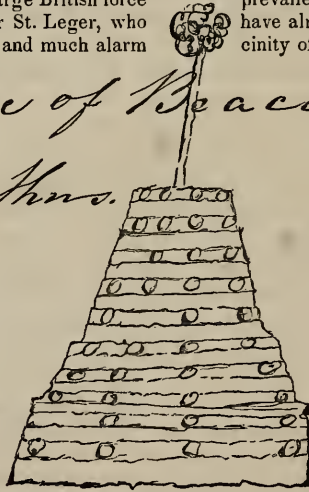 large British force
St. Leger, who
and much alarm
have alr
cinity of
e of Beac
Thus.